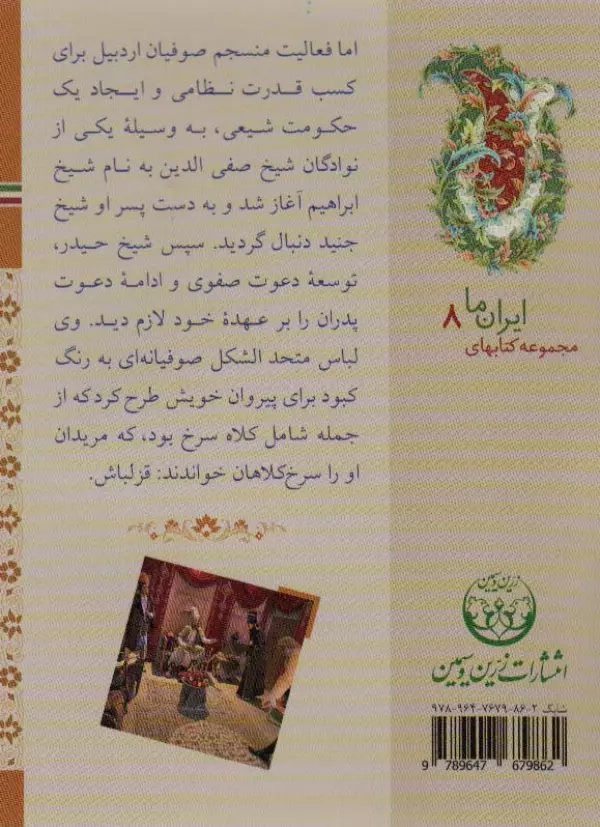 اما فعالیت منسجم صوفیان اردبیل برای
کسب قدرت نظامی و ایجاد یک
حکومت شیعی، به وسیلۀ یکی از
نوادگان شیخ صفی الدین به نام شیخ
ابراهیم آغاز شد و به دست پسر او شیخ
جنید دنبال گردید. سپس شیخ حیدر،
توسعۀ دعوت صفوی و ادامۀ دعوت
پدران را بر عهدۀ خود لازم دید. وی
لباس متحد الشکل صوفیانه‌ای به رنگ
کبود برای پیروان خویش طرح کرد که از
جمله شامل کلاه سرخ بود، که مریدان
او را سرخ‌کلاهان خواندند: قزلباش.
ایران ما ۸
مجموعه کتابهای
زرین و سیمین
انتشارات زرین و سیمین
شابک ۹۷۸-۹۶۴-۷۶۷۹-۸۶-۲
9 789647 679862